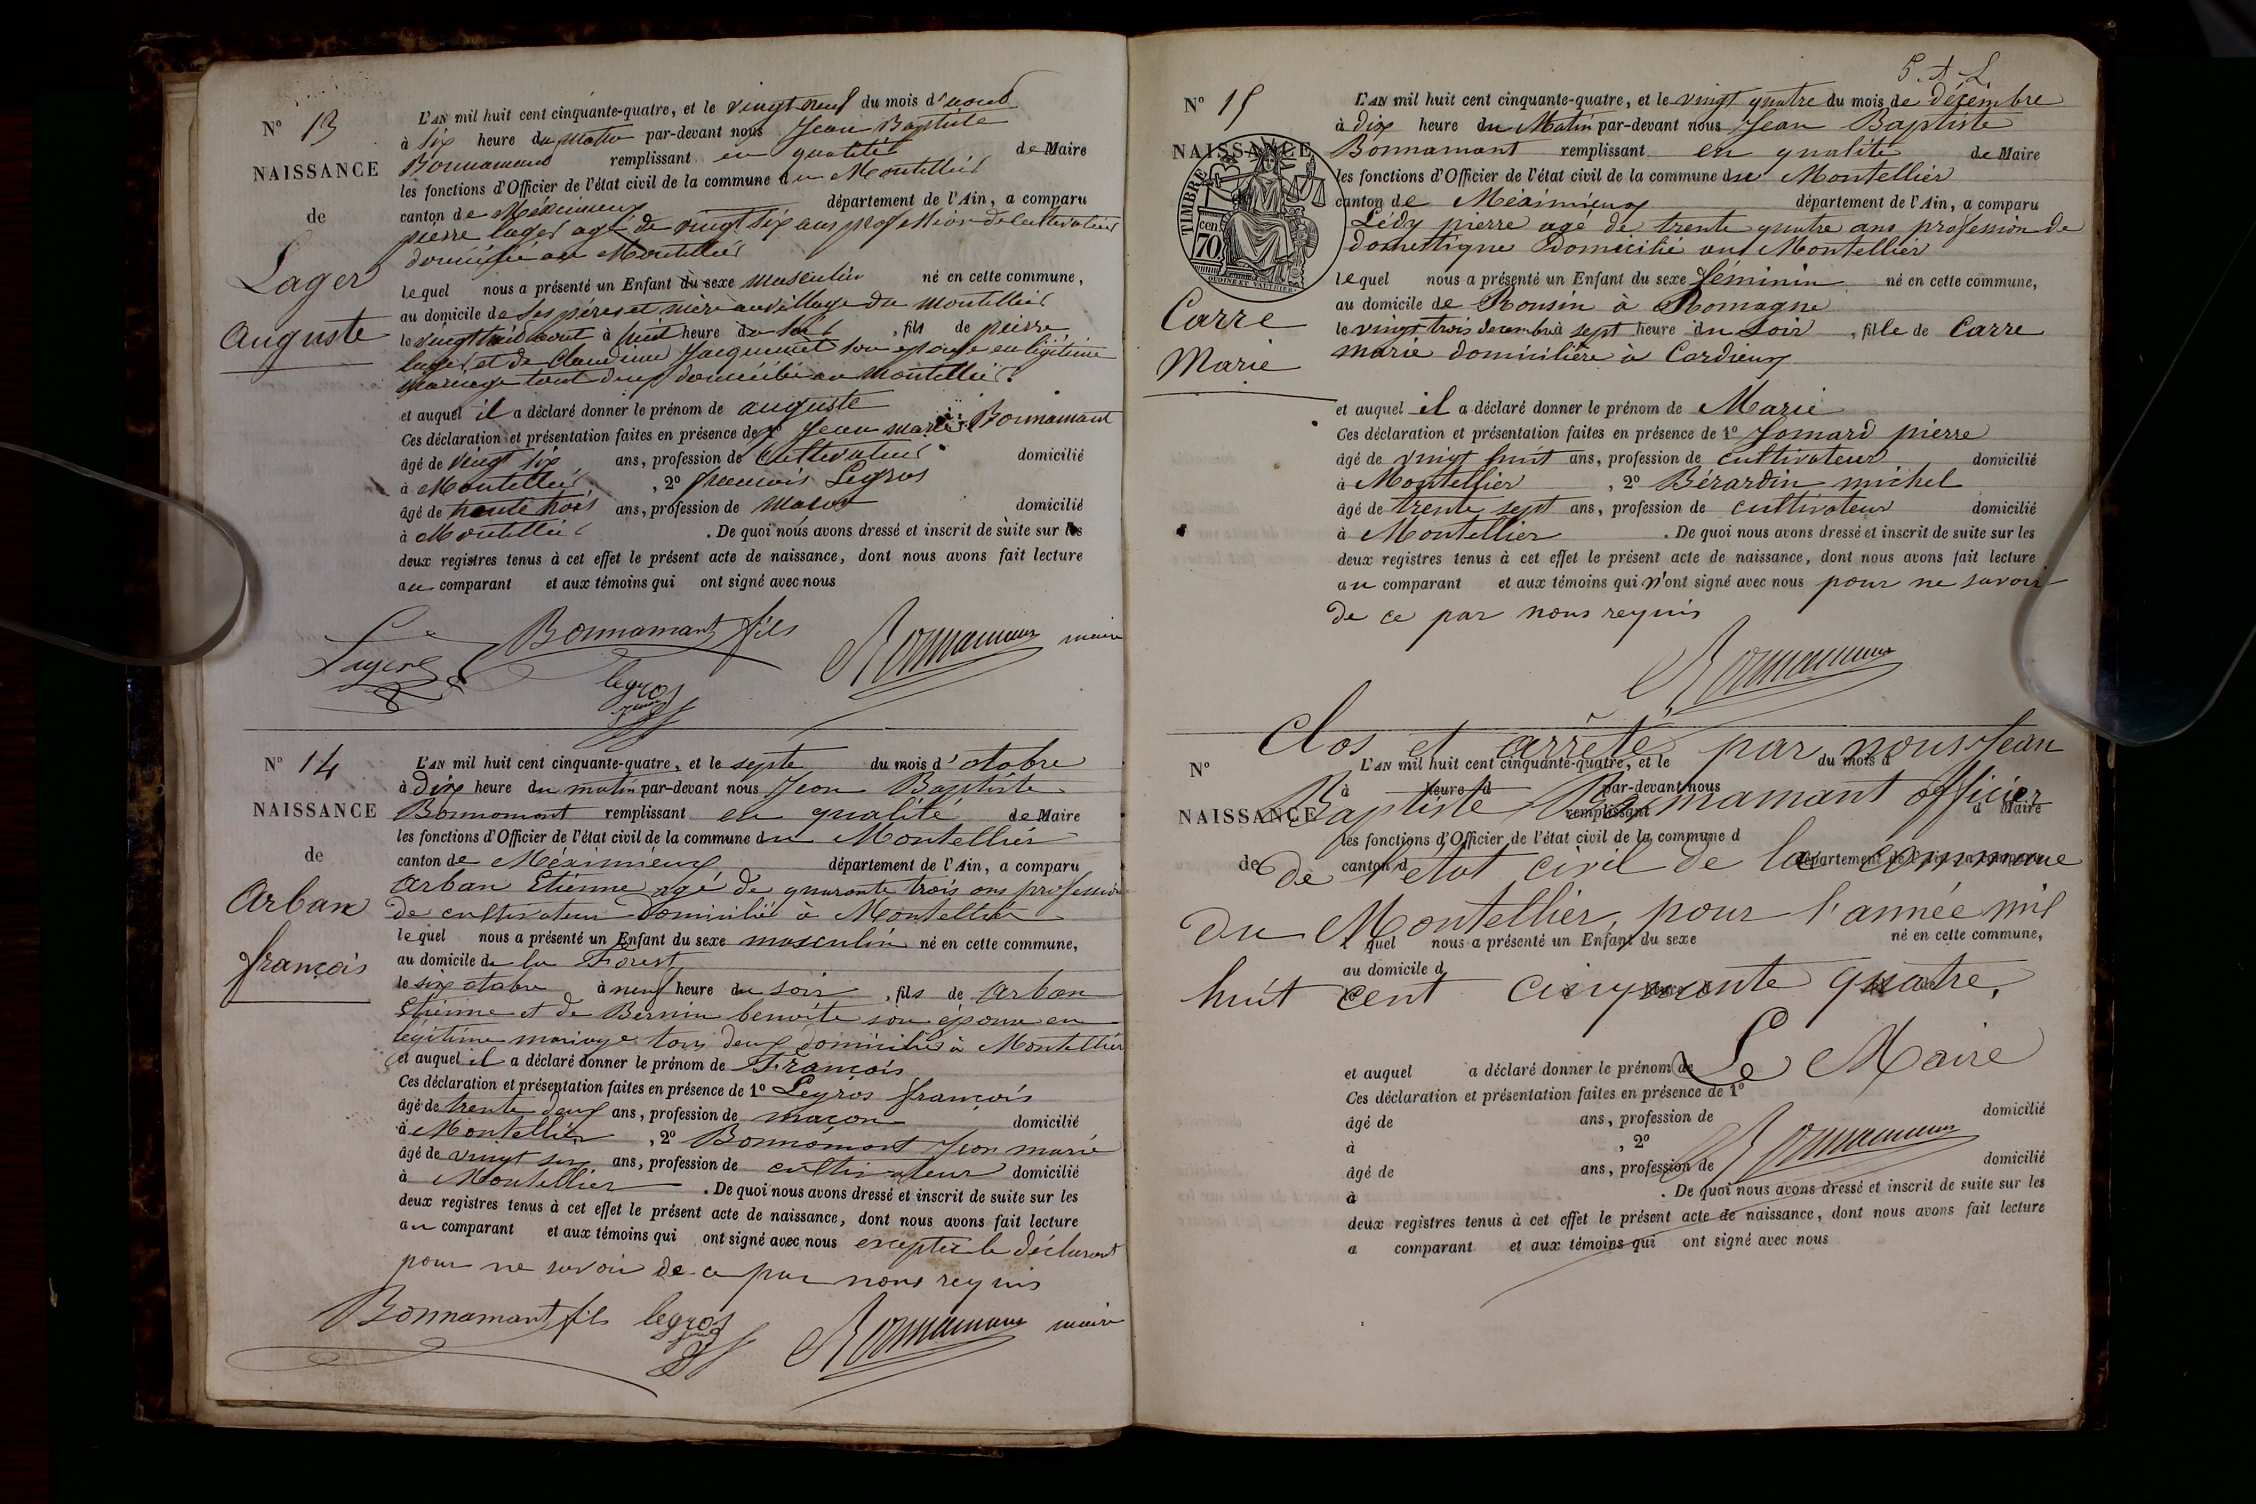 N° 13
NAISSANCE
de
Lager
Auguste
L'AN mil huit cent cinquante-quatre, et le vingt neuf du mois d'aout
à six heure du matin par-devant nous Jean Baptiste
Bonnamant remplissant en qualité de Maire
les fonctions d'Officier de l'état civil de la commune du Montellier
canton de Méximieux département de l'Ain, a comparu
pierre lager agé de vingt six ans profession de cultivateur
domicilié au Montellier
lequel nous a présenté un Enfant du sexe masculin né en cette commune,
au domicile de ses péres et mère au village du Montellier
le vingt huit aout à huit heure du soir, fils de pierre
lager et de Claudine Jacquemet son épouse en légitime
mariage tout deux domicilié au Montellier.
et auquel il a déclaré donner le prénom de auguste
Ces déclaration et présentation faites en présence de 1° Jean marie Bonnamant
âgé de vingt six ans, profession de cultivateur domicilié
à Montellier, 2° francois Legros
âgé de trente trois ans, profession de macon domicilié
à Montellier. De quoi nous avons dressé et inscrit de suite sur les
deux registres tenus à cet effet le présent acte de naissance, dont nous avons fait lecture
au comparant et aux témoins qui ont signé avec nous
Bonnamant fils
legros
Bonnamant maire
N° 14
NAISSANCE
de
Arban
françois
L'AN mil huit cent cinquante-quatre, et le septe du mois d'otobre
à dix heure du matin par-devant nous Jean Baptiste
Bonnamont remplissant en qualité de Maire
les fonctions d'Officier de l'état civil de la commune du Montellier
canton de Méximieux département de l'Ain, a comparu
Arban Etienne agé de quarante trois ans profession
de cultivateur domicilié à Montellier
lequel nous a présenté un Enfant du sexe masculin né en cette commune,
au domicile de la Forest
le six otobre à neuf heure du soir, fils de Arban
Etienne et de Bernin benoite son épouse en
légitime mariage tous deux domiciliés à Montellier
et auquel il a déclaré donner le prénom de François
Ces déclaration et présentation faites en présence de 1° Legros françois
âgé de trente deux ans, profession de maçon domicilié
à Montellier, 2° Bonnamont Jean marie
âgé de vingt six ans, profession de cultivateur domicilié
à Montellier. De quoi nous avons dressé et inscrit de suite sur les
deux registres tenus à cet effet le présent acte de naissance, dont nous avons fait lecture
au comparant et aux témoins qui ont signé avec nous excepter le déclarant
pour ne savoir de ce par nous requis
Bonnamant fils legros
Bonnamant maire
5. A. L.
N° 15
NAISSANCE
TIMBRE
70 cent
Carre
Marie
L'AN mil huit cent cinquante-quatre, et le vingt quatre du mois de décembre
à dix heure du Matin par-devant nous Jean Baptiste
Bonnamant remplissant en qualité de Maire
les fonctions d'Officier de l'état civil de la commune du Montellier
canton de Méximieux département de l'Ain, a comparu
Lédy pierre agé de trente quatre ans profession de
domestique domicilié au Montellier
lequel nous a présenté un Enfant du sexe féminin né en cette commune,
au domicile de Rousin à Romagne
le vingt trois decembre à sept heure du soir, fille de Carre
marie domicilière à Cordieux
et auquel il a déclaré donner le prénom de Marie
Ces déclaration et présentation faites en présence de 1° Jomard pierre
âgé de vingt huit ans, profession de cultivateur domicilié
à Montellier, 2° Bérardin michel
âgé de trente sept ans, profession de cultivateur domicilié
à Montellier. De quoi nous avons dressé et inscrit de suite sur les
deux registres tenus à cet effet le présent acte de naissance, dont nous avons fait lecture
au comparant et aux témoins qui n'ont signé avec nous pour ne savoir
de ce par nous requis
Bonnamant
Clos et arrêté par nous Jean
N° L'AN mil huit cent cinquante-quatre, et le du mois d
à heure d par-devant nous
Baptiste Bonnamant officier
NAISSANCE remplissant d Maire
les fonctions d'Officier de l'état civil de la commune d
de canton d département de l'Ain, a comparu
de l'état civil de la commune
du Montellier, pour l'année mil
l quel nous a présenté un Enfant du sexe né en cette commune,
au domicile d
huit cent cinquante quatre.
Le Maire
et auquel a déclaré donner le prénom de
Ces déclaration et présentation faites en présence de 1°
âgé de ans, profession de domicilié
à , 2°
Bonnamant
âgé de ans, profession de domicilié
à . De quoi nous avons dressé et inscrit de suite sur les
deux registres tenus à cet effet le présent acte de naissance, dont nous avons fait lecture
a comparant et aux témoins qui ont signé avec nous